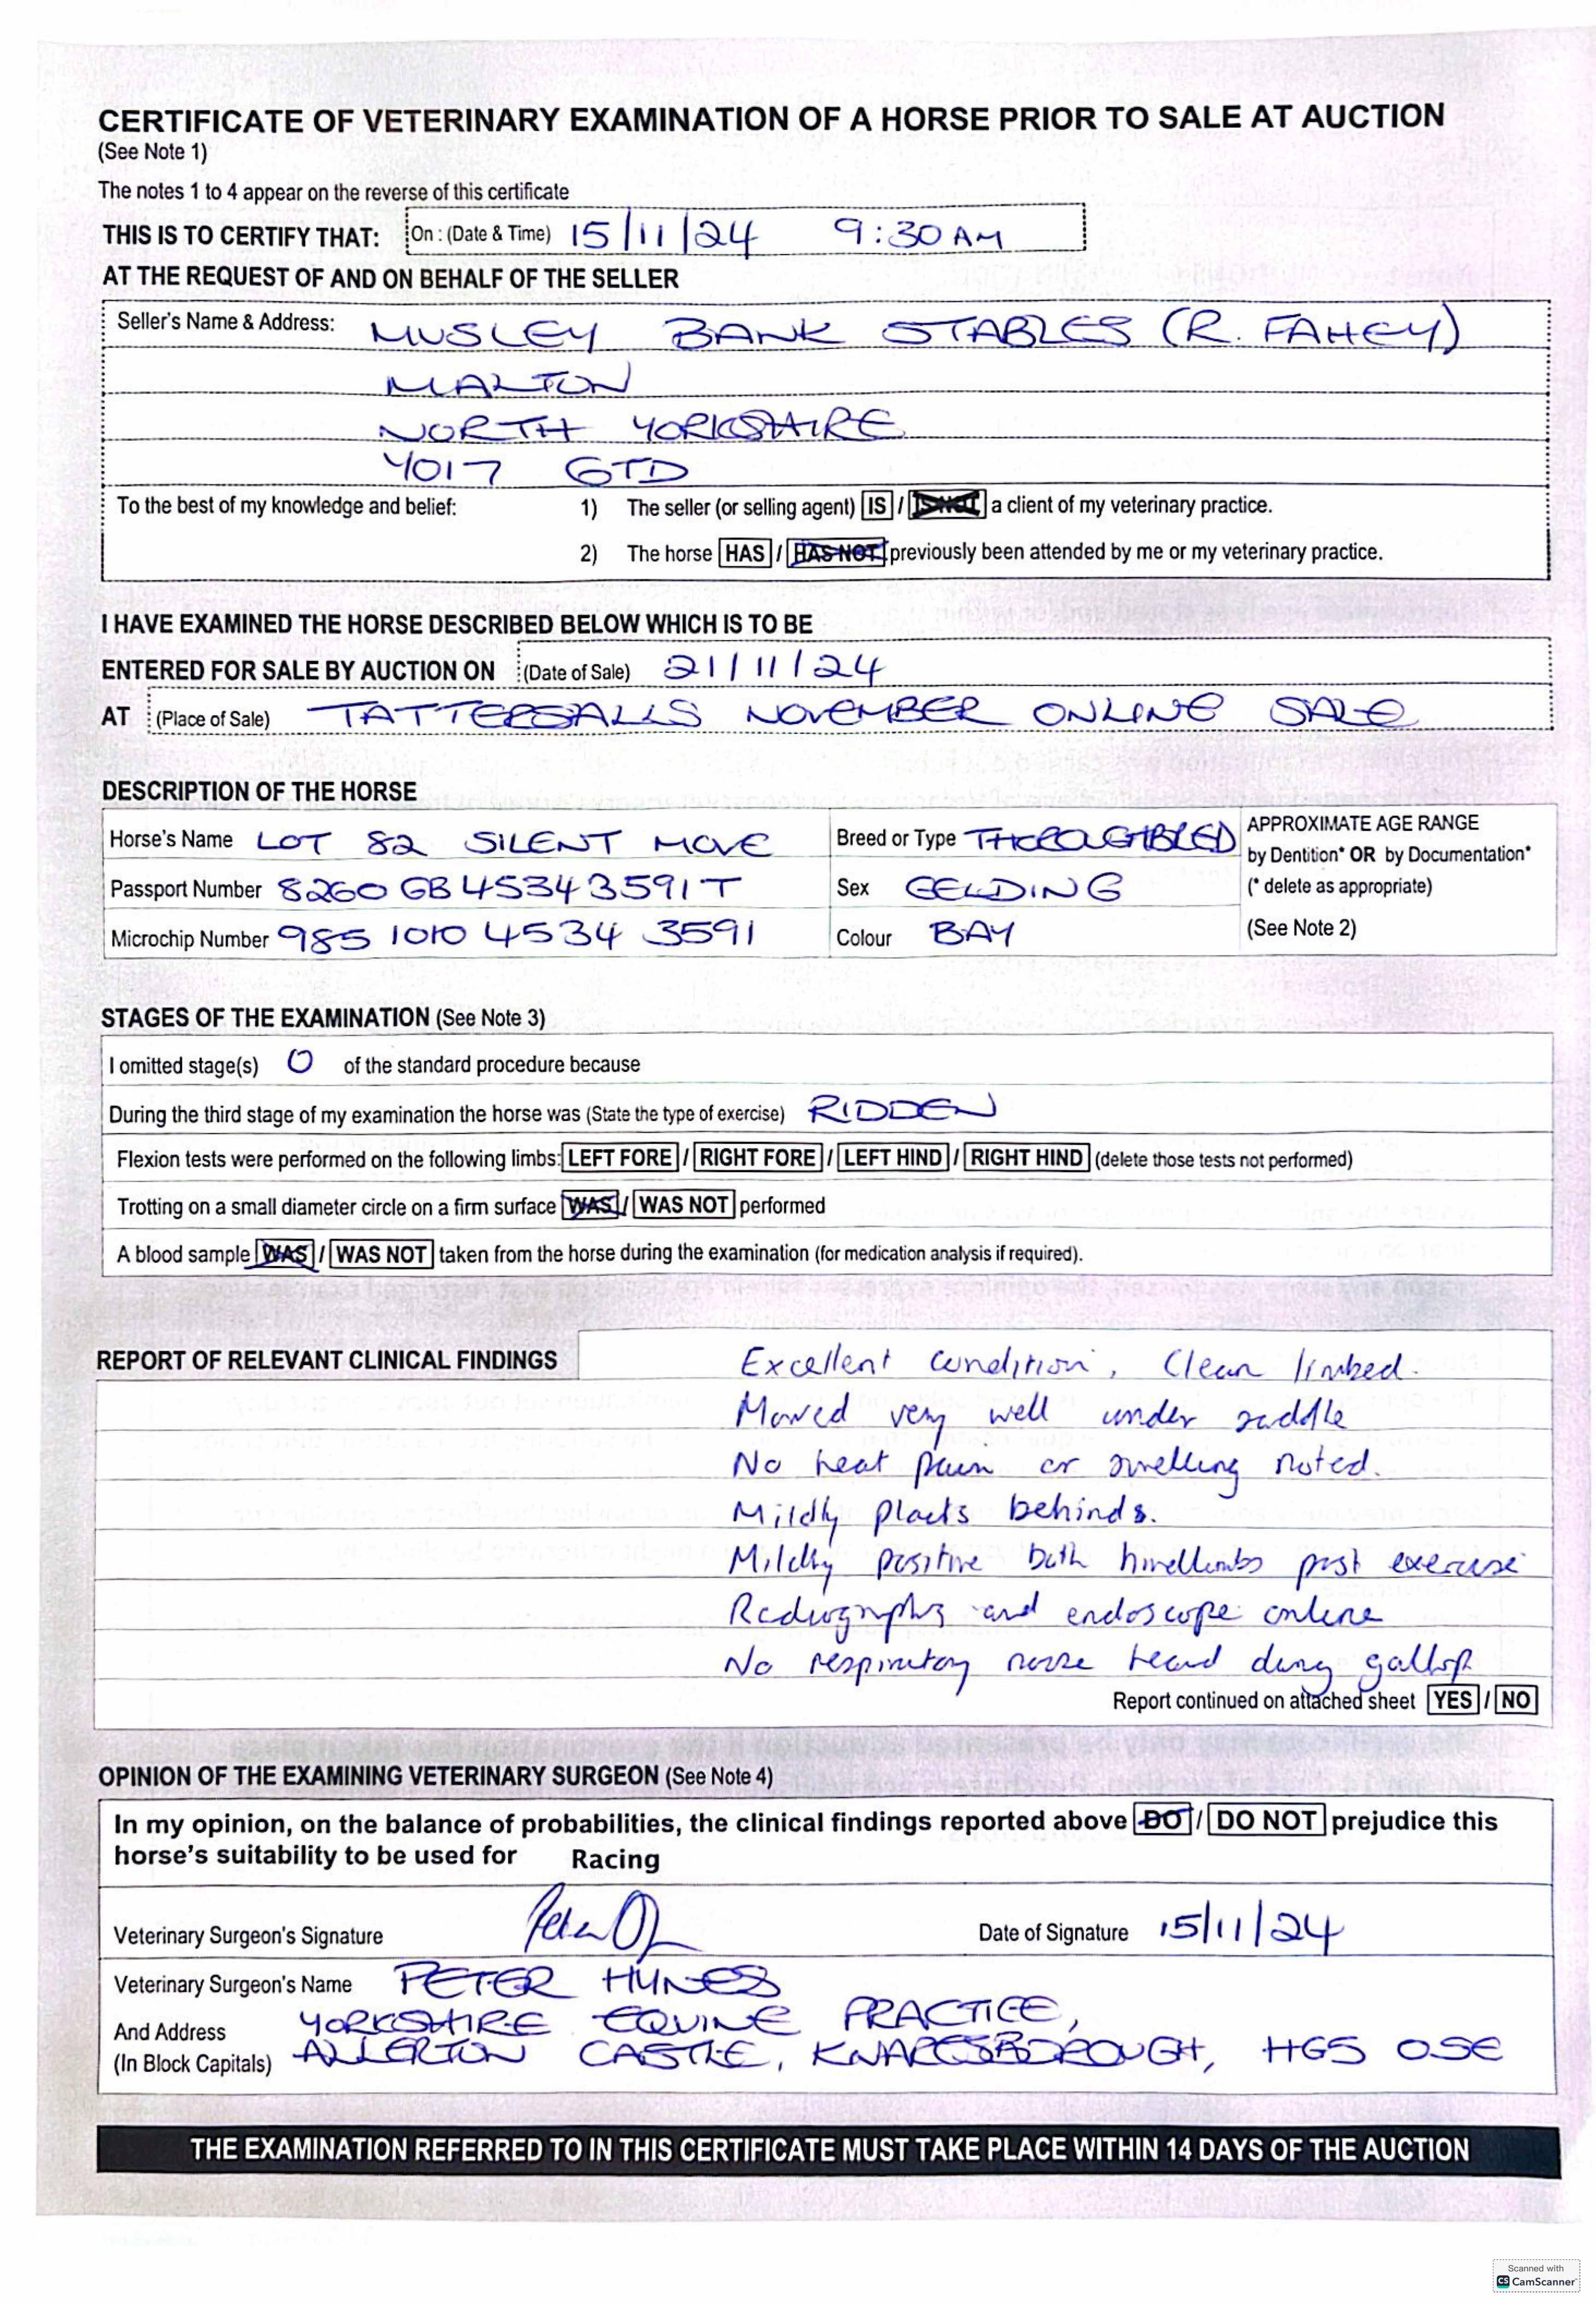 CERTIFICATE OF VETERINARY EXAMINATION OF A HORSE PRIOR TO SALE AT AUCTION
(See Note 1)
The notes 1 to 4 appear on the reverse of this certificate
THIS IS TO CERTIFY THAT: On : (Date & Time) 15/11/24 9:30 AM
AT THE REQUEST OF AND ON BEHALF OF THE SELLER
Seller's Name & Address: MUSLEY BANK STABLES (R. FAHEY)
MALTON
NORTH YORKSHIRE
YO17 6TD
To the best of my knowledge and belief: 1) The seller (or selling agent) IS / IS NOT a client of my veterinary practice.
2) The horse HAS / HAS NOT previously been attended by me or my veterinary practice.
I HAVE EXAMINED THE HORSE DESCRIBED BELOW WHICH IS TO BE
ENTERED FOR SALE BY AUCTION ON (Date of Sale) 21/11/24
AT (Place of Sale) TATTERSALLS NOVEMBER ONLINE SALE
DESCRIPTION OF THE HORSE
Horse's Name LOT 82 SILENT MOVE Breed or Type THOROUGHBRED APPROXIMATE AGE RANGE
by Dentition* OR by Documentation*
Passport Number 8260 GB 45343591T Sex GELDING (* delete as appropriate)
Microchip Number 985 1010 4534 3591 Colour BAY (See Note 2)
STAGES OF THE EXAMINATION (See Note 3)
I omitted stage(s) 0 of the standard procedure because
During the third stage of my examination the horse was (State the type of exercise) RIDDEN
Flexion tests were performed on the following limbs: LEFT FORE / RIGHT FORE / LEFT HIND / RIGHT HIND (delete those tests not performed)
Trotting on a small diameter circle on a firm surface WAS / WAS NOT performed
A blood sample WAS / WAS NOT taken from the horse during the examination (for medication analysis if required).
REPORT OF RELEVANT CLINICAL FINDINGS Excellent condition, Clean limbed.
Moved very well under saddle
No heat pain or swelling noted.
Mildly plaits behinds.
Mildly positive both hindlimbs post exercise
Radiographs and endoscope online
No respiratory noise heard during gallop
Report continued on attached sheet YES / NO
OPINION OF THE EXAMINING VETERINARY SURGEON (See Note 4)
In my opinion, on the balance of probabilities, the clinical findings reported above DO / DO NOT prejudice this
horse's suitability to be used for Racing
Veterinary Surgeon's Signature Date of Signature 15/11/24
Veterinary Surgeon's Name PETER HYNES
And Address YORKSHIRE EQUINE PRACTICE,
(In Block Capitals) ALLERTON CASTLE, KNARESBOROUGH, HG5 0SE
THE EXAMINATION REFERRED TO IN THIS CERTIFICATE MUST TAKE PLACE WITHIN 14 DAYS OF THE AUCTION
Scanned with
CS CamScanner